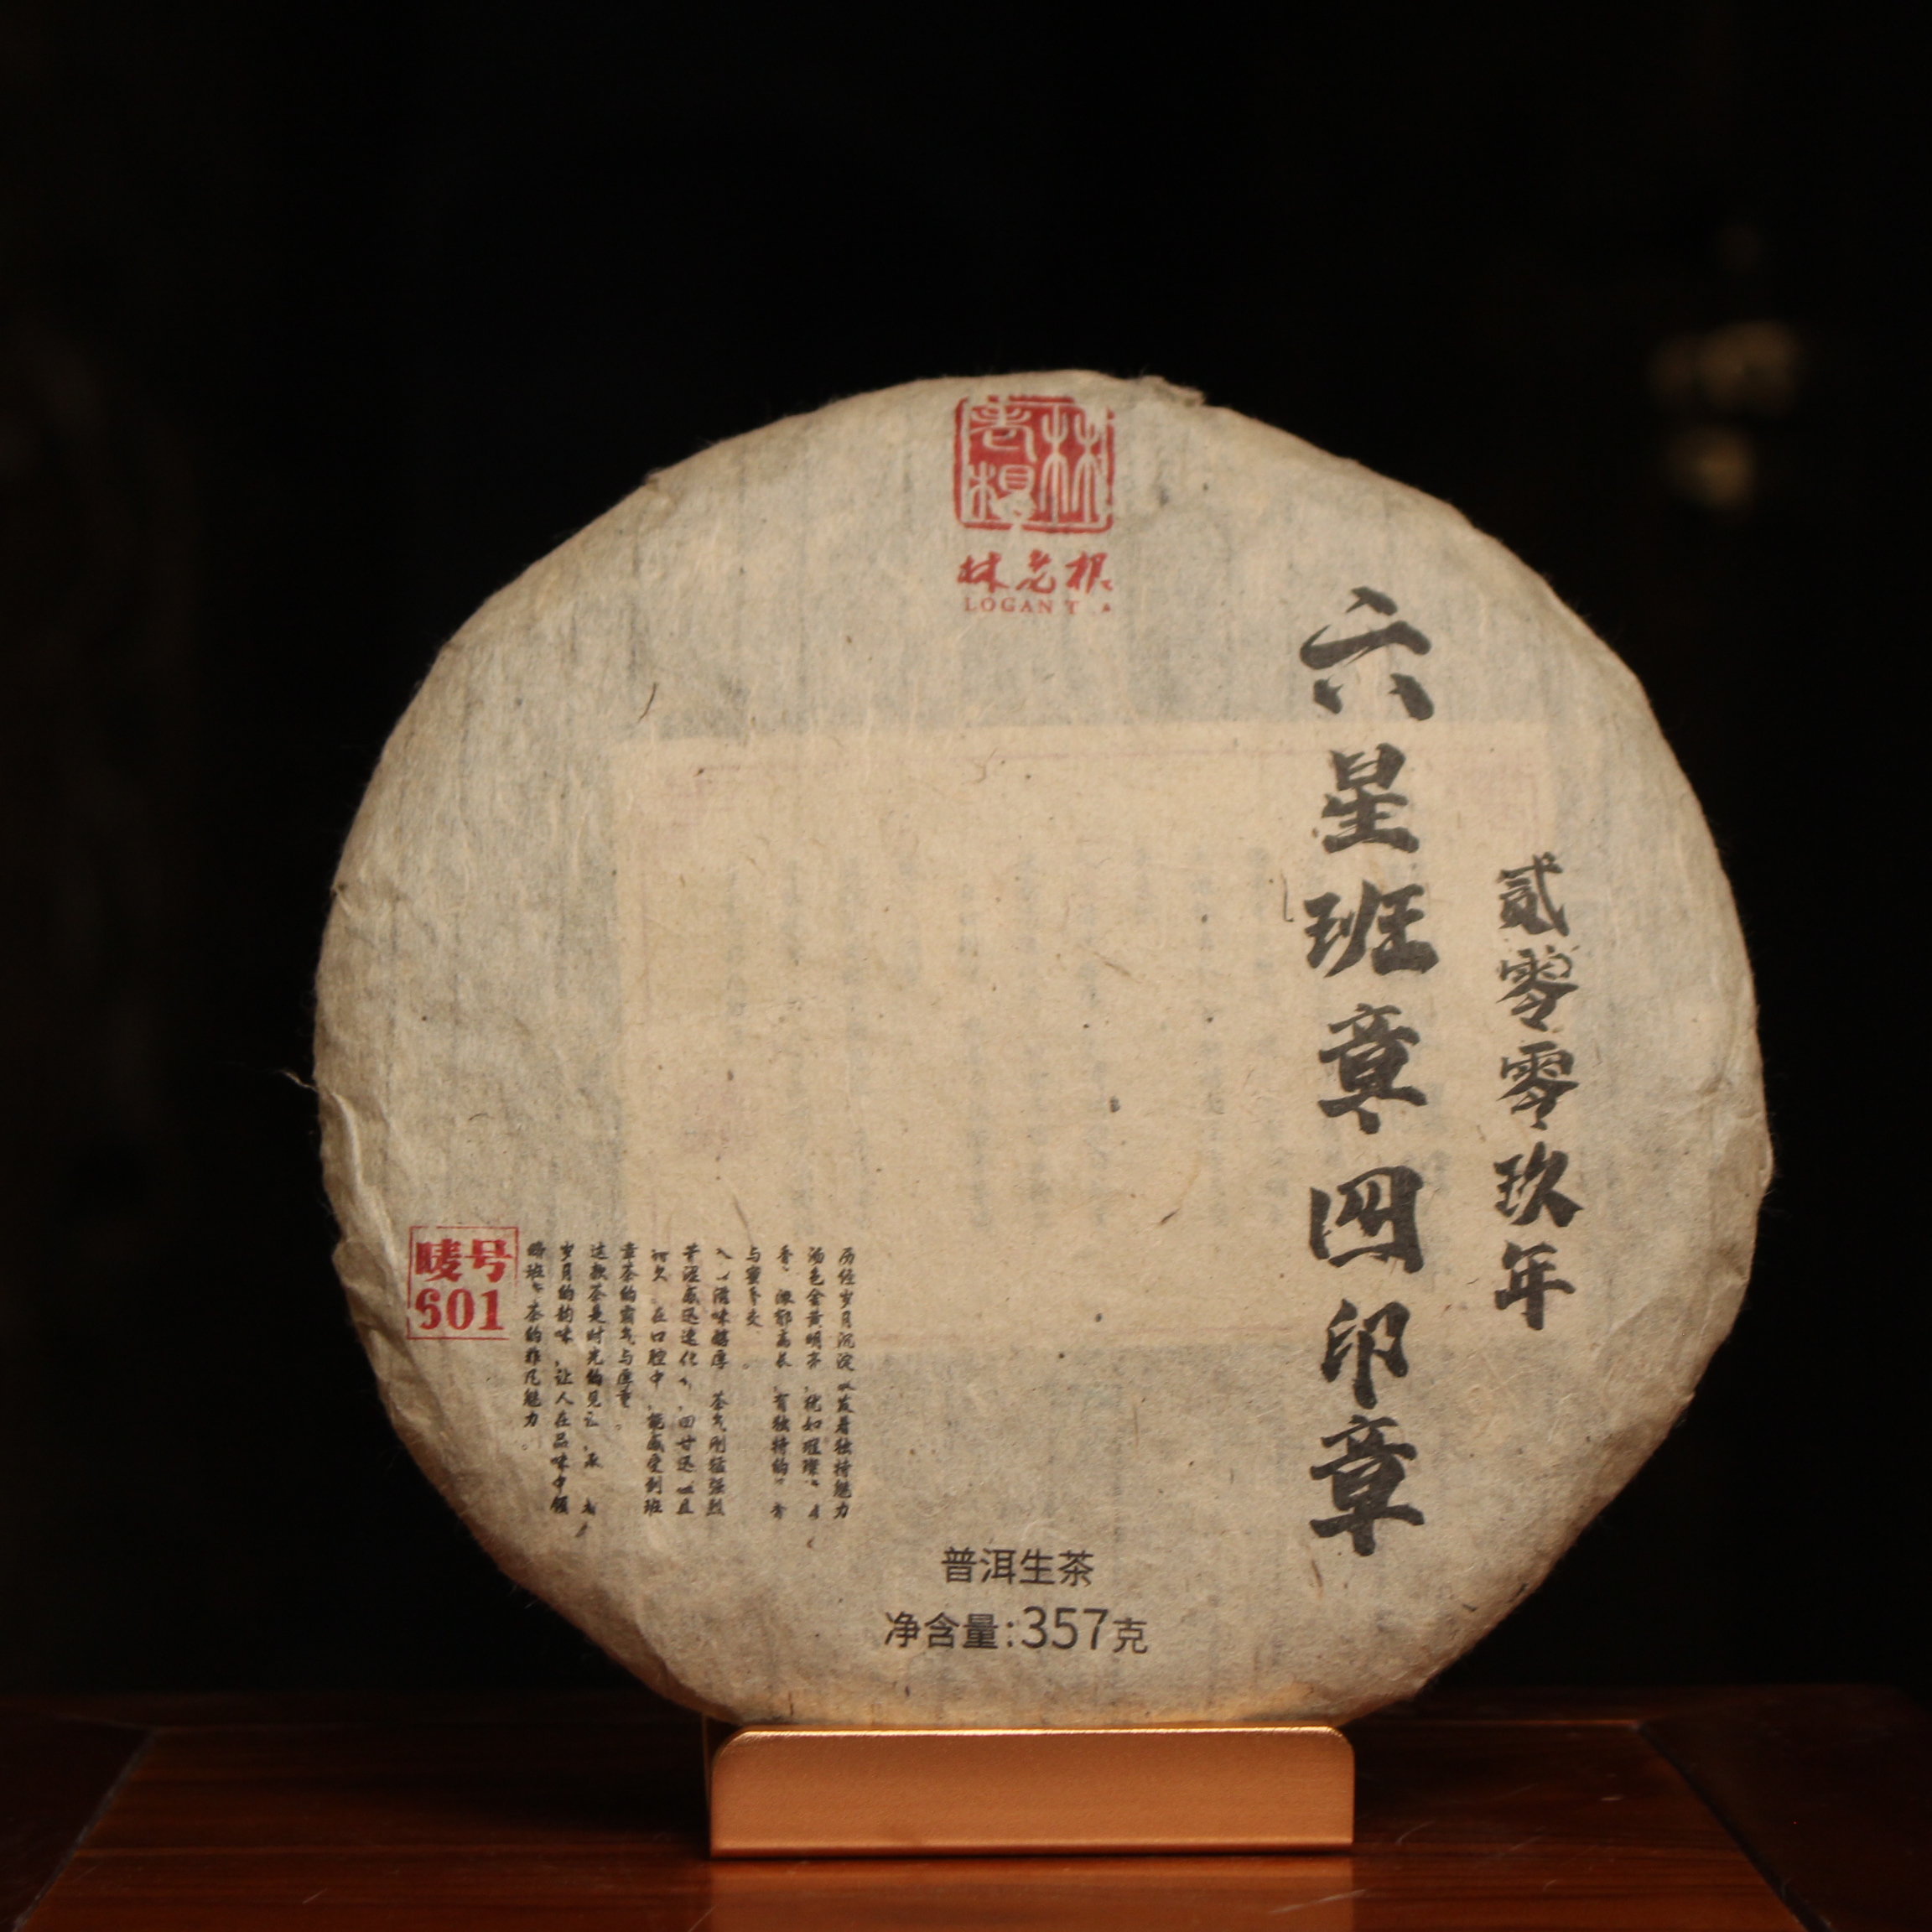 林老根
林老根
LOGAN T
贰零零玖年
六星班章四印章
历经岁月沉淀 散发着独特魅力
汤色金黄明亮 犹如璀璨
香 浓郁高长 有独特的
与蜜香交
滋味醇厚 茶气刚猛强烈
苦涩感迅速化 回甘迅 且
持久 在口腔中 能感受到班
章茶的霸气与厚重。
这款茶是时光的见证 承 着
岁月的韵味 让人在品味中领
略班 茶的非凡魅力。
唛号
601
普洱生茶
净含量:357克